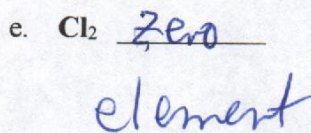 e. Cl₂ Zero
element